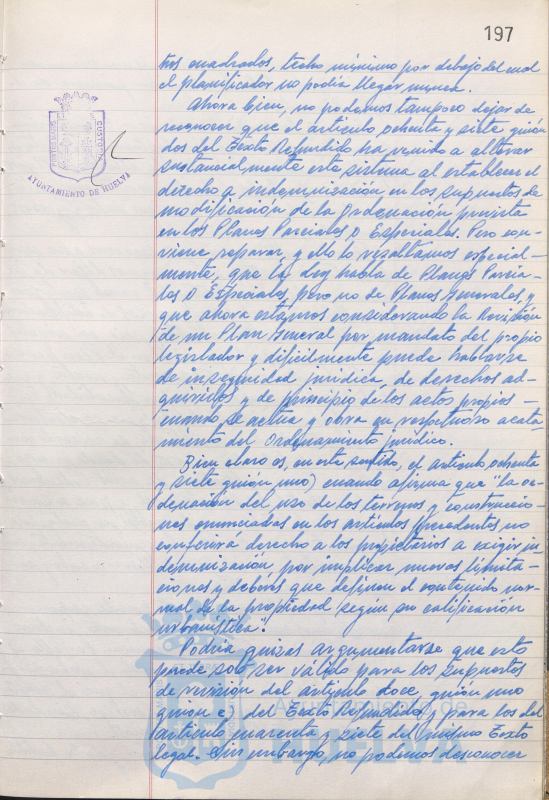 197
tros cuadrados, techo mínimo por debajo del cual
el planificador no podía llegar nunca.
Ahora bien, no podemos tampoco dejar de
reconocer que el artículo ochenta y siete guión
dos del Texto Refundido ha venido a alterar
sustancialmente este sistema al establecer el
derecho a indemnización en los supuestos de
modificación de la Ordenación prevista
en los Planes Parciales o Especiales. Pero con-
viene reparar, y ello lo resaltamos especial-
mente, que la Ley habla de Planes Parcia-
les o Especiales, pero no de Planes Generales, y
que ahora estamos considerando la Revisión
de un Plan General por mandato del propio
legislador y difícilmente puede hablarse
de inseguridad jurídica, de derechos ad-
quiridos y de principio de los actos propios -
cuando se actúa y obra en respetuoso acata-
miento del Ordenamiento jurídico.
Bien claro es, en este sentido, el artículo ochenta
y siete guión uno) cuando afirma que "la or-
denación del uso de los terrenos y construccio-
nes enunciadas en los artículos precedentes no
conferirá derecho a los propietarios a exigir in-
demnización, por implicar meras limita-
ciones y deberes que definen el contenido nor-
mal de la propiedad según su calificación
urbanística".
Podría quizás argumentarse que esto
puede solo ser válido para los supuestos
de revisión del artículo doce, guión uno
guión e) del Texto Refundido y para los del
artículo cuarenta y siete del mismo Texto
legal. Sin embargo, no podemos desconocer
PORTUS MARIS
CUSTODIA
AYUNTAMIENTO DE HUELVA
Ayuntamiento de
HUELVA